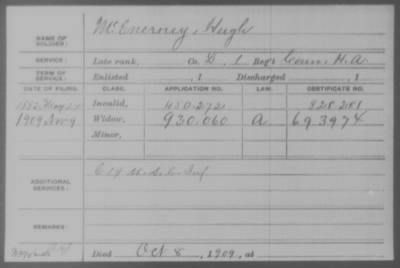 NAME OF SOLDIER: McEnerney, Hugh
SERVICE: Late rank, Co. D, 1 Reg't Conn. H. A.
TERM OF SERVICE: Enlisted , 1 Discharged , 1
DATE OF FILING. CLASS. APPLICATION NO. LAW. CERTIFICATE NO.
1882 May Invalid, 450.272 928.281
1909 Nov 9 Widow, 930.060 A 693974
Minor,
ADDITIONAL SERVICES: C 14 U.S.C. Inf.
REMARKS:
Died Oct 8, 1909, at